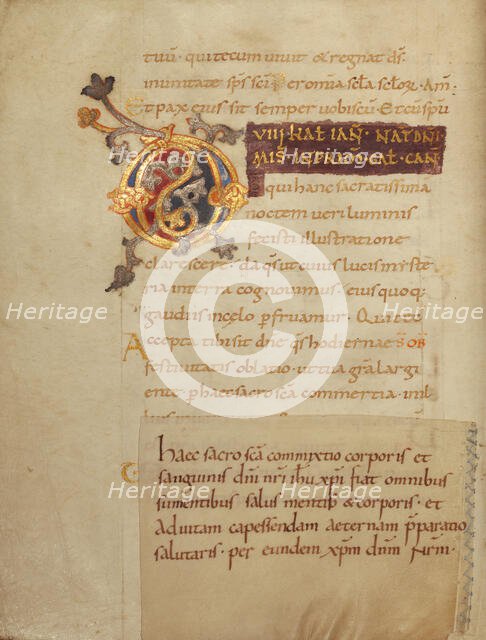 tuū · qui tecum vivit & regnat d̄s ·
in unitate sp̄s sc̄i Per omnia sc̄la sc̄lorꝫ · Am̄
Et pax eius sit semper vobiscū · Et cū sp̄u
VIII KAL IAN̄ · NAT DN̄I
D̄S qui hanc sacratissima
noctem veri luminis
fecisti illustratione
clarescere · da q̄s ut cuius lucis myste
ria in terra cognovimus · eius quoq;
gaudiis in celo p̄fruamur · Qui tec̄
Accepta tibi sit dn̄e q̄s hodiernae S̄ OB̄
festivitatis oblatio · ut tua grā largi
ente · p̄ haec sacrosc̄a commertia · in il
Haec sacro sc̄a commixtio corporis et
sanguinis dn̄i nr̄i ih̄u xp̄i fiat omnibus
sumentibus salus mentis & corporis · et
ad vitam capessendam aeternam p̄paratio
salutaris · per eundem xp̄m dn̄m nr̄m ·
Heritage
Heritage
Heritage
Heritage
Heritage
Heritage
©